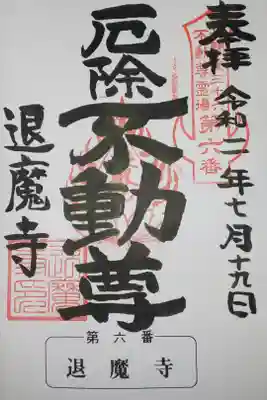 奉拝 令和一年七月十九日
不動尊霊場
第六番
厄除不動尊
退魔寺
第六番
退魔寺